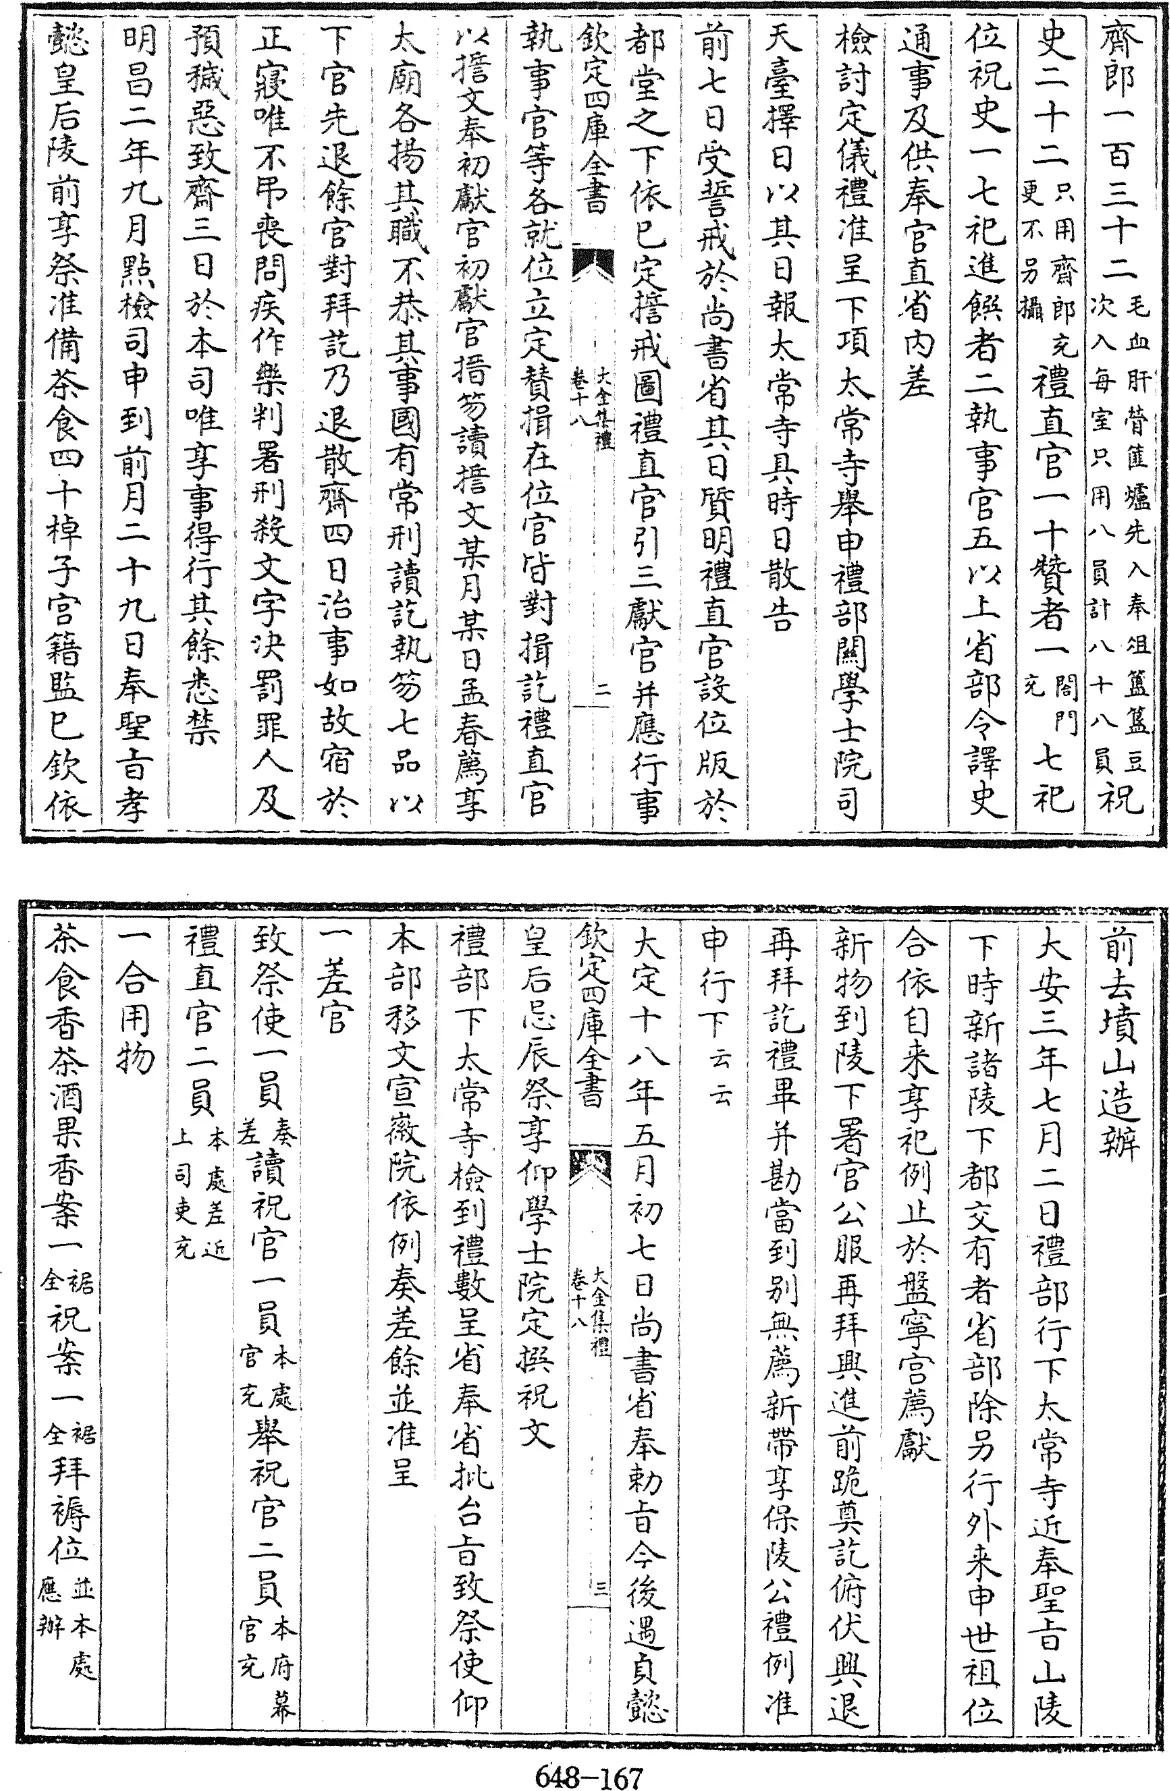 齊郎一百三十二毛血肝膋篚爐先入奉俎簠簋豆次入每室只用八員計八十八員祝
史二十二只用齊郎充更不另攝禮直官一十贊者一閤門充七祀
位祝史一七祀進饌者二執事官五以上省部令譯史
通事及供奉官直省内差
檢討定儀禮准呈下項太常寺舉申禮部關學士院司
天臺擇日以其日報太常寺具時日散告
前七日受誓戒於尚書省其日質明禮直官設位版於
都堂之下依已定誓戒圖禮直官引三獻官并應行事
欽定四庫全書 大金集禮卷十八 二
執事官等各就位立定贊揖在位官皆對揖訖禮直官
以誓文奉初獻官初獻官搢笏讀誓文某月某日孟春薦享
太廟各揚其職不恭其事國有常刑讀訖執笏七品以
下官先退餘官對拜訖乃退散齊四日治事如故宿於
正寢唯不弔喪問疾作樂判署刑殺文字決罰罪人及
預穢惡致齊三日於本司唯享事得行其餘悉禁
明昌二年九月點檢司申到前月二十九日奉聖旨孝
懿皇后陵前享祭准備茶食四十棹子宮籍監已欽依
前去墳山造辦
大安三年七月二日禮部行下太常寺近奉聖旨山陵
下時新諸陵下都交有者省部除另行外来申世祖位
合依自来享祀例止於盤寧宫薦獻
新物到陵下署官公服再拜興進前跪奠訖俯伏興退
再拜訖禮畢并勘當到别無薦新帶享保陵公禮例准
申行下云云
大定十八年五月初七日尚書省奉勅旨今後遇貞懿
欽定四庫全書 大金集禮卷十八 三
皇后忌辰祭享仰學士院定撰祝文
禮部下太常寺檢到禮數呈省奉省批台旨致祭使仰
本部移文宣徽院依例奏差餘並准呈
一差官
致祭使一員奏差讀祝官一員本處官充舉祝官二員本府幕官充
禮直官二員本處差近上司吏充
一合用物
茶食香茶酒果香案一裾全祝案一裾全拜褥位並本處應辦
648-167